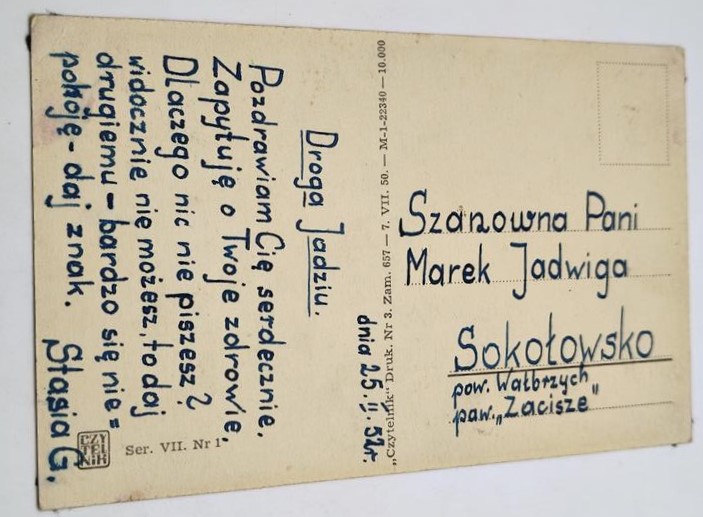 dnia 25.II.52r.
Droga Jadziu.
Pozdrawiam Cię serdecznie.
Zapytuję o Twoje zdrowie.
Dlaczego nic nie piszesz?
widocznie nie możesz, to daj
drugiemu - bardzo się nie=
pokoję - daj znak. Stasia G.
CZY
TEL
NIK
Ser. VII. Nr 1
„Czytelnik" Druk. Nr 3. Zam. 657 — 7. VII. 50. — M-1-22340 — 10.000
Szanowna Pani
Marek Jadwiga
Sokołowsko
pow. Wałbrzych
paw. „Zacisze"